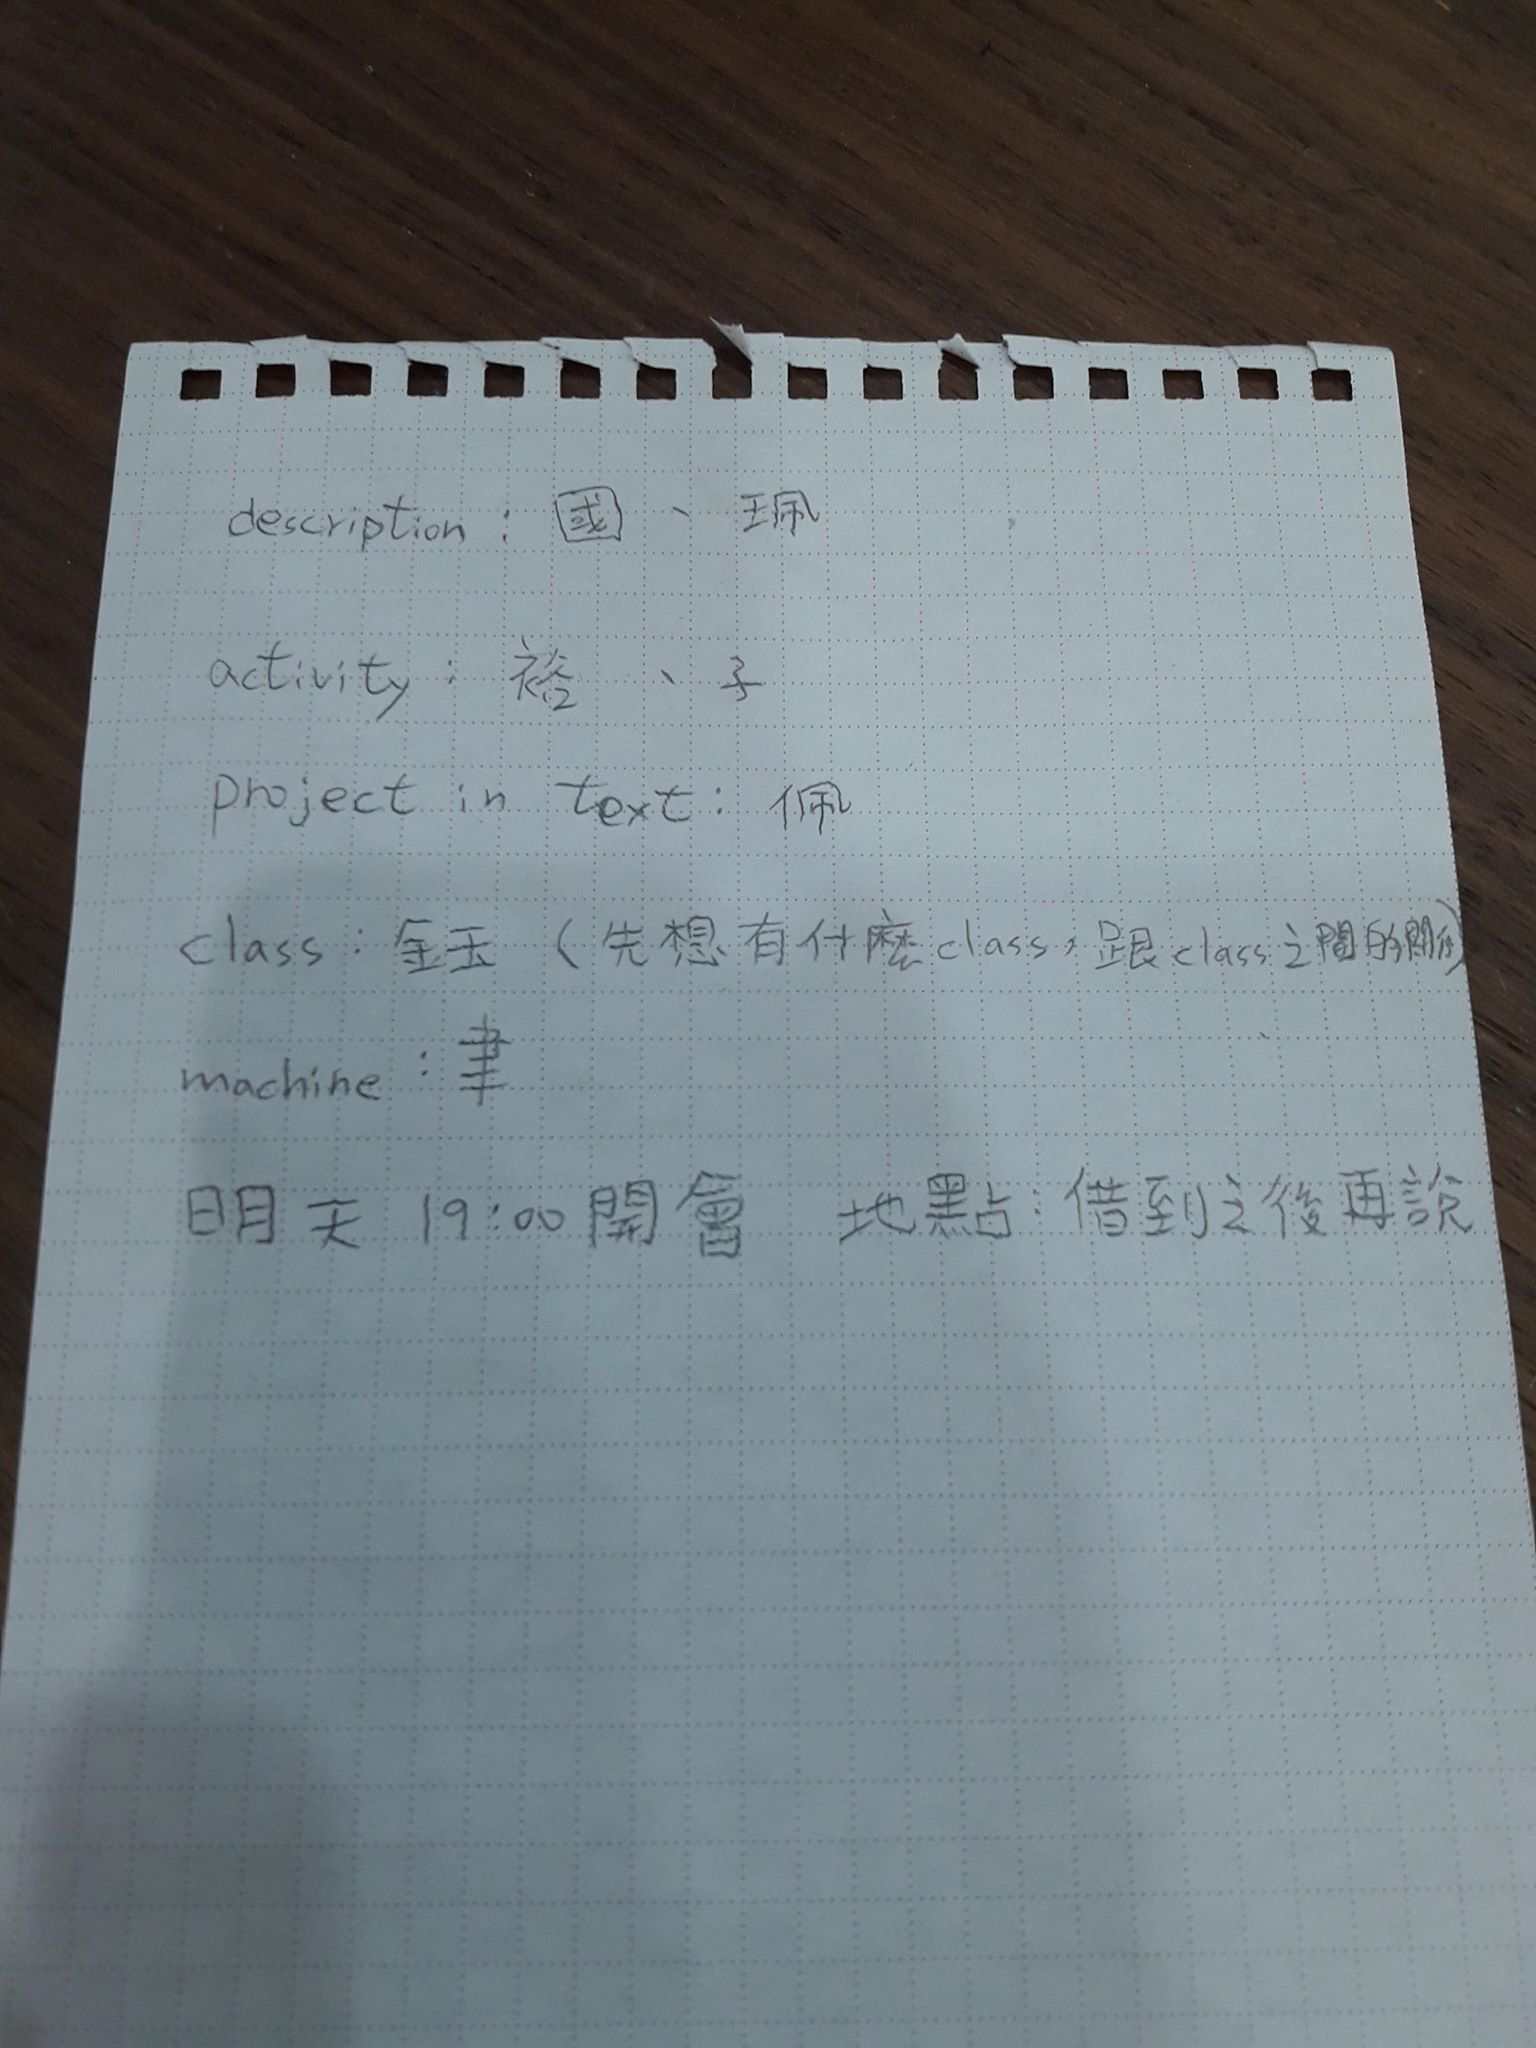 description : 國、珮
activity : 裕、子
project in text : 佩
class : 鈺 (先想有什麼class,跟class之間的關係)
machine : 聿
明天 19:00 開會 地點:借到之後再說